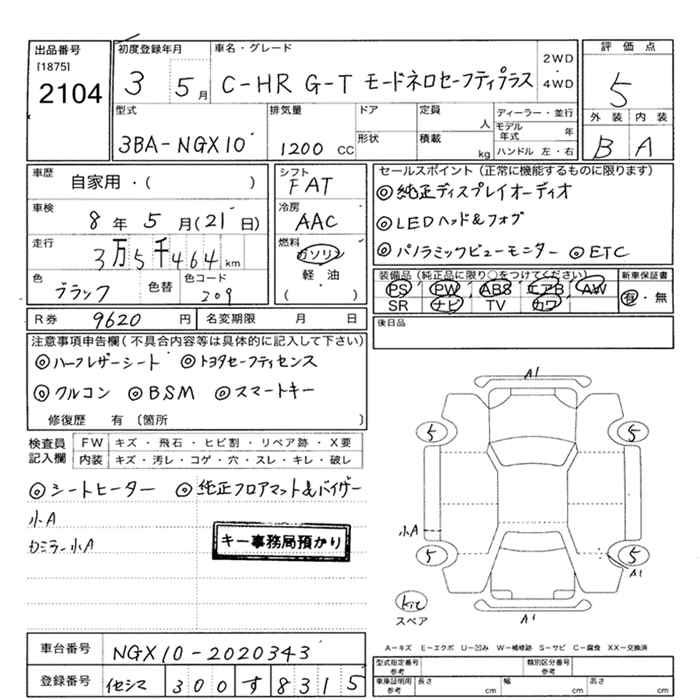 出品番号
[1875]
2104
初度登録年月
3 5月
車名・グレード
C-HR G-T モードネロセーフティプラス
2WD
・
4WD
評価点
5
外装 内装
B A
型式
3BA-NGX10
排気量
1200 CC
ドア
形状
定員
人
積載
kg
ディーラー・並行
モデル年式 年
ハンドル 左・右
車歴
自家用・( )
車検
8年 5月(21日)
走行
3万5千464km
色
ブラック
色替
色コード
209
シフト
FAT
冷房
AAC
燃料
ガソリン
軽・油
( )
セールスポイント(正常に機能するものに限ります)
◎純正ディスプレイオーディオ
◎LEDヘッド&フォグ
◎パノラミックビューモニター ◎ETC
装備品(純正品に限り○をつけてください)
PS PW ABS エアB AW
SR ナビ TV カワ
新車保証書
有・無
R券 9620円
名変期限 月 日
後日品
注意事項申告欄(不具合内容等は具体的に記入して下さい)
◎ハーフレザーシート ◎トヨタセーフティセンス
◎クルコン ◎BSM ◎スマートキー
修復歴 有 〔箇所 〕
検査員記入欄
FW キズ・飛石・ヒビ割・リペア跡・X要
内装 キズ・汚レ・コゲ・穴・スレ・キレ・破レ
◎シートヒーター ◎純正フロアマット&バイザー
小A
カミラー小A
キー事務局預かり
A1
5 5
小A
5 5
A1
スペア
A1
A-キズ E-エクボ U-凹み W-補修跡 S-サビ C-腐食 XX-交換済
車台番号
NGX10-2020343
登録番号
伊セシマ 300 す 8315
型式指定番号
参考
類別区分番号
参考
車庫証明用
参考
長さ cm
幅 cm
高さ cm